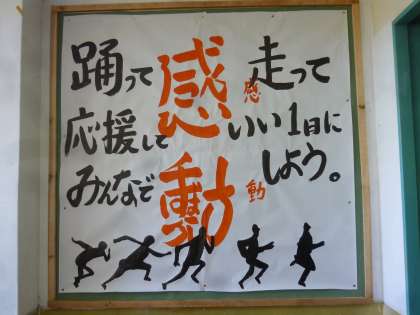 踊って 走って
応援して いい1日に
みんなで しよう。
感動
感
動